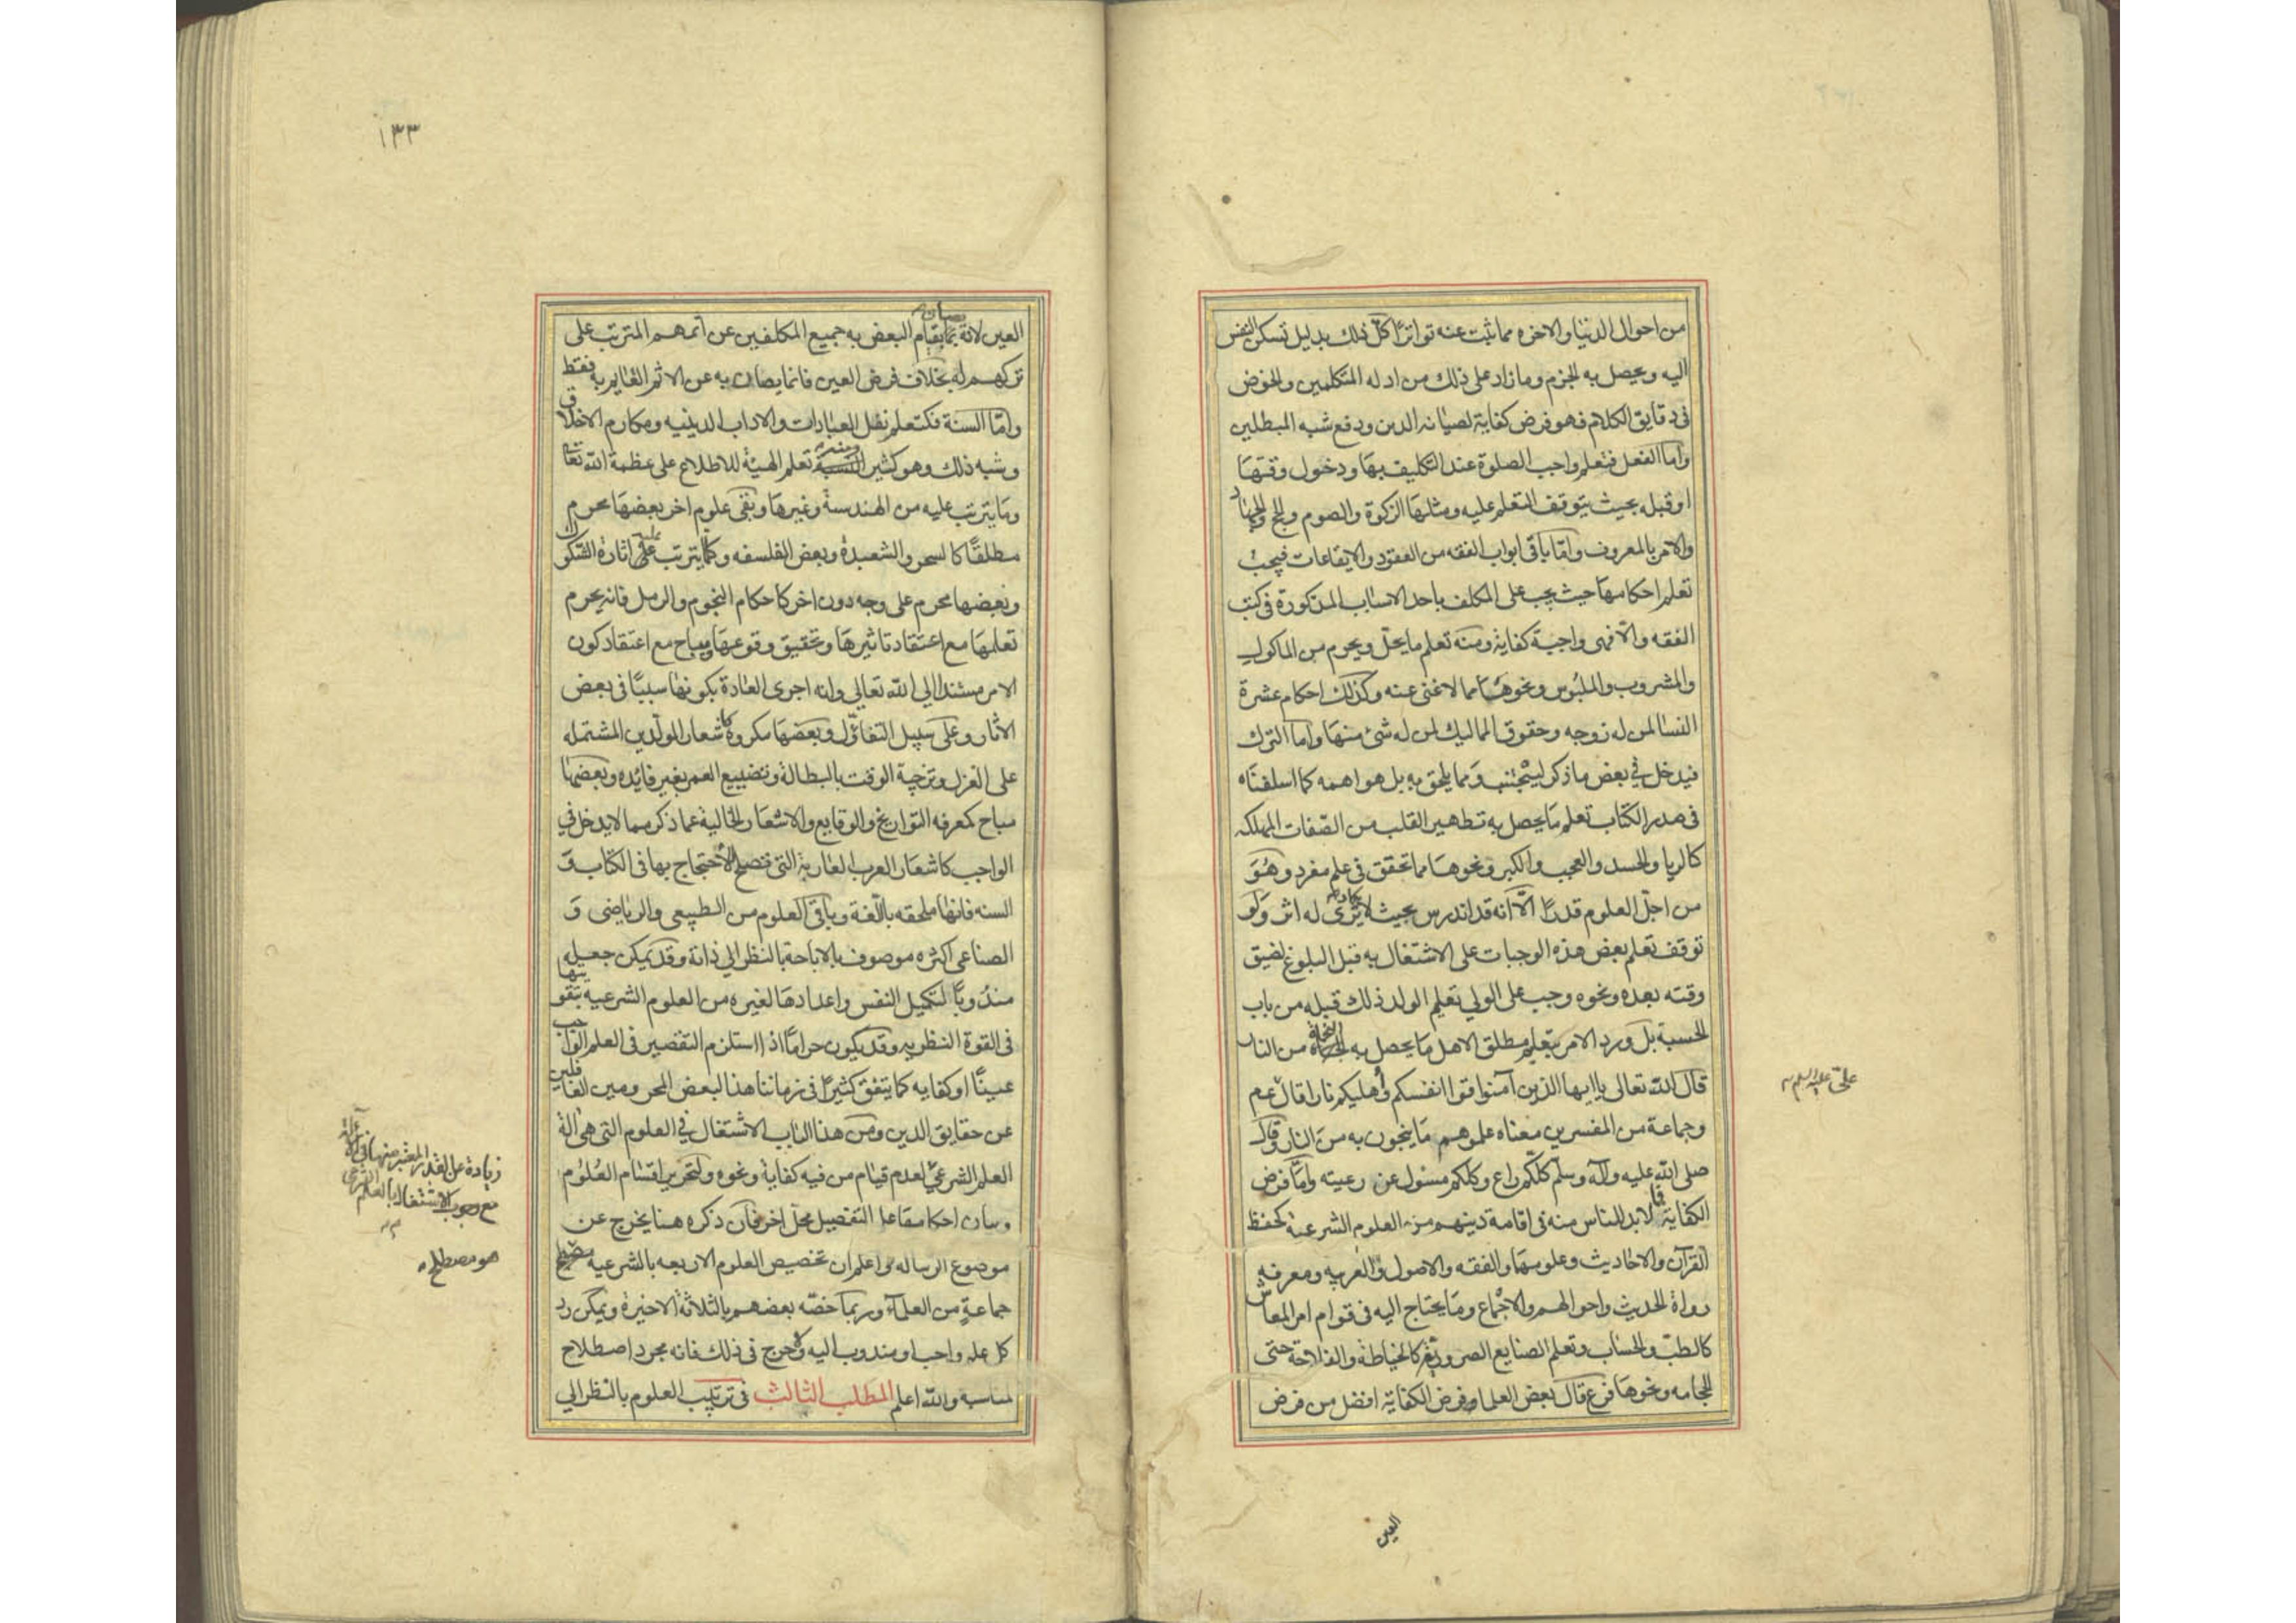 من احوال الدنيا والاخره مما ثبت عنه تواترا كل ذلك بدليل تسكن النفس
اليه ويحصل به الجزم وما زاد على ذلك من ادله المتكلمين والخوض
فى دقايق الكلام فهو فرض كفاية لصيانه الدين ودفع شبه المبطلين
واما الفعل فتعلم واجب الصلوة عند التكليف بها ودخول وقتها
او قبله بحيث يتوقف التعلم عليه ومثلها الزكوة والصوم والحج والجهاد
والامر بالمعروف واما باقى ابواب الفقه من العقود والايقاعات فيجب
تعلم احكامها حيث يجب على المكلف باحد الاسباب المذكورة فى كتب
الفقه والا فهى واجبة كفاية ومنه تعلم ما يحل ويحرم من الماكول
والمشروب والملبوس ونحوها مما لاغنى عنه وكذلك احكام عشرة
النسا لمن له زوجه وحقوق المماليك لمن له شئ منها واما الترك
فيدخل فى بعض ما ذكر ليجتنب ومما يلحق به بل هو اهمه كما اسلفناه
فى صدر الكتاب تعلم ما يحصل به تطهير القلب من الصفات المهلكه
كالريا والحسد والعجب والكبر ونحوها مما تحقق فى علم مفرد وهو
من اجل العلوم قدرا الا انه قد اندرس بحيث لا يكاد يرى له اثر ولو
توقف تعلم بعض هذه الوجبات على الاشتغال به قبل البلوغ لضيق
وقته بعده ونحوه وجب على الولي تعليم الولد ذلك قبله من باب
الحسبة بل ورد الامر بتعليم مطلق الاهل ما يحصل به النجاة من النار
قال الله تعالى يا ايها الذين آمنوا قوا انفسكم واهليكم نارا قال عم
وجماعة من المفسرين معناه علموهم ما ينجون به من النار وقال
صلى الله عليه وآله وسلم كلكم راع وكلكم مسئول عن رعيته واما فرض
الكفاية فما لابد للناس منه فى اقامة دينهم من العلوم الشرعية كحفظ
القرآن والاحاديث وعلومها والفقه والاصول والعربيه ومعرفه
رواة الحديث واحوالهم والاجماع وما يحتاج اليه فى قوام امر المعاش
كالطب والحساب وتعلم الصنايع الضروريه كالخياطة والفلاحة حتى
الحجامه ونحوها فرع قال بعض العلما وفرض الكفاية افضل من فرض
على عليه السلم
العين
١٣٣
العين لانه يصان بقيام البعض به جميع المكلفين عن اثمهم المترتب على
تركهم له بخلاف فرض العين فانما يصان به عن الاثم القايم به فقط
واما السنة فكتعلم نفل العبادات والاداب الدينيه ومكارم الاخلاق
وشبه ذلك وهو كثير ومنه تعلم الهيئة للاطلاع على عظمة الله تعالى
وما يترتب عليه من الهندسة وغيرها وبقى علوم اخر بعضها محرم
مطلقا كالسحر والشعبدة وبعض الفلسفه وكلما يترتب عليه اثارة الشكوك
وبعضها محرم على وجه دون اخر كاحكام النجوم والرمل فانه يحرم
تعلمها مع اعتقاد تاثيرها وتحقيق وقوعها ومباح مع اعتقاد كون
الامر مستندا الى الله تعالى وانه اجرى العادة بكونها سببا فى بعض
الاثار وعلى سبيل التفاؤل وبعضها مكروه كاشعار المولدين المشتمله
على الغزل وتزجية الوقت بالبطالة وتضييع العمر بغير فايده وبعضها
مباح كمعرفه التواريخ والوقايع والاشعار الخالية عما ذكر مما لا يدخل فى
الواجب كاشعار العرب العاربة التى تصلح للاحتجاج بها فى الكتاب و
السنه فانها ملحقه باللغة وباقى العلوم من الطبيعى والرياضى و
الصناعى اكثره موصوف بالاباحة بالنظر الى ذاته وقد يمكن جعله
مندوبا لتكميل النفس واعدادها لغيره من العلوم الشرعيه بتقويتها
فى القوة النظريه وقد يكون حراما اذا استلزم التقصير فى العلم الواجب
عينا او كفايه كما يتفق كثيرا فى زماننا هذا لبعض المحرومين الغافلين
عن حقايق الدين ومن هذا الباب الاشتغال فى العلوم التى هى الة
العلم الشرعى لعدم قيام من فيه كفاية ونحوه ولتحرير اقسام العلوم
وبيان احكامها على التفصيل محل اخر فان ذكره هنا يخرج عن
موضوع الرساله واعلم ان تخصيص العلوم الاربعه بالشرعيه مصطلح
جماعة من العلماء وربما خصه بعضهم بالثلاثة الاخيرة ويمكن رد
كل علم واجب او مندوب اليه ولا حرج فى ذلك فانه مجرد اصطلاح
لمناسبة والله اعلم المطلب الثالث فى ترتيب العلوم بالنظر الى
زيادة على القدر المعتبر منها فى الآلية
مع وجوب الاشتغال بالعلم الشرعى
هو مصطلح